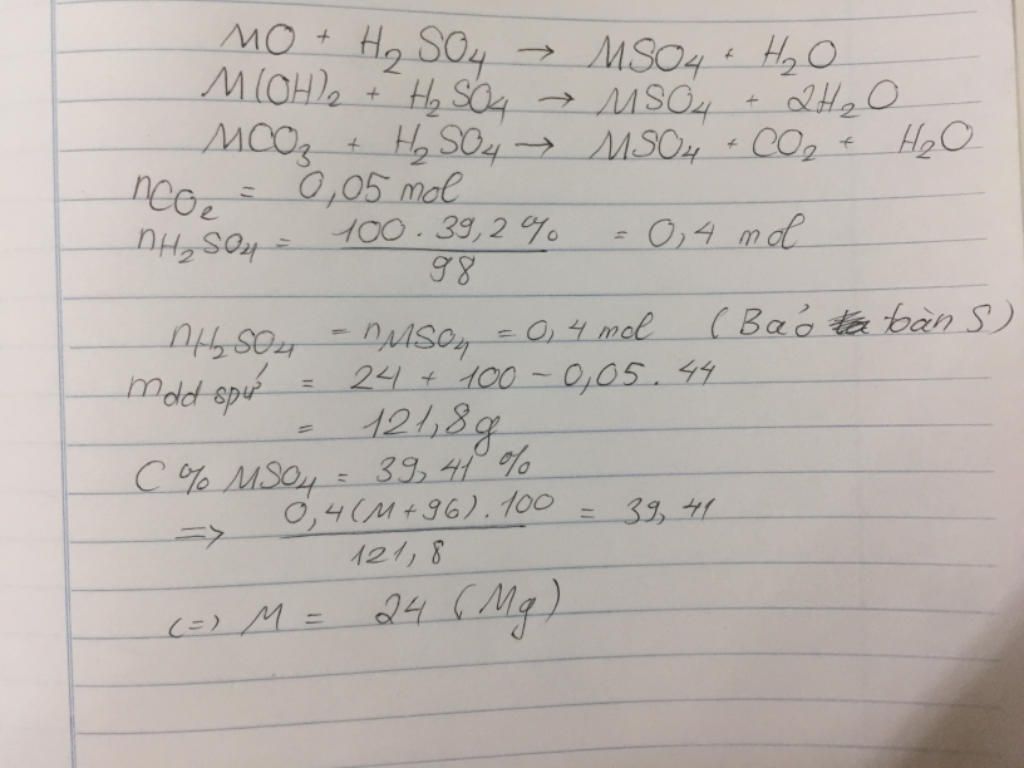 MO + H₂SO₄ → MSO₄ + H₂O
M(OH)₂ + H₂SO₄ → MSO₄ + 2H₂O
MCO₃ + H₂SO₄ → MSO₄ + CO₂ + H₂O
nCO₂ = 0,05 mol
nH₂SO₄ = 100 . 39,2% / 98 = 0,4 mol
nH₂SO₄ = nMSO₄ = 0,4 mol (Bảo toàn S)
mdd spứ = 24 + 100 - 0,05 . 44
= 121,8g
C% MSO₄ = 39,41 %
=> 0,4(M+96) . 100 / 121,8 = 39,41
(=) M = 24 (Mg)